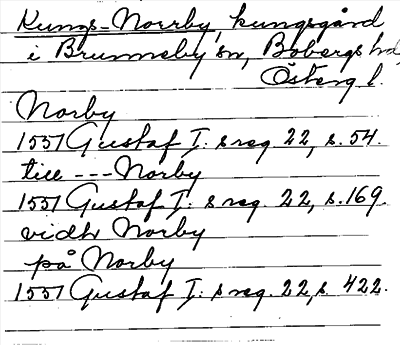 Kungs-Norrby, kungsgård
i Brunneby sn, Bobergs hd,
Österg l.
Norby
1551 Gustaf I:s reg. 22, s. 54.
till --- Norby
1551 Gustaf I:s reg. 22, s. 169.
vidh Norby
på Norby
1551 Gustaf I:s reg. 22, s. 422.